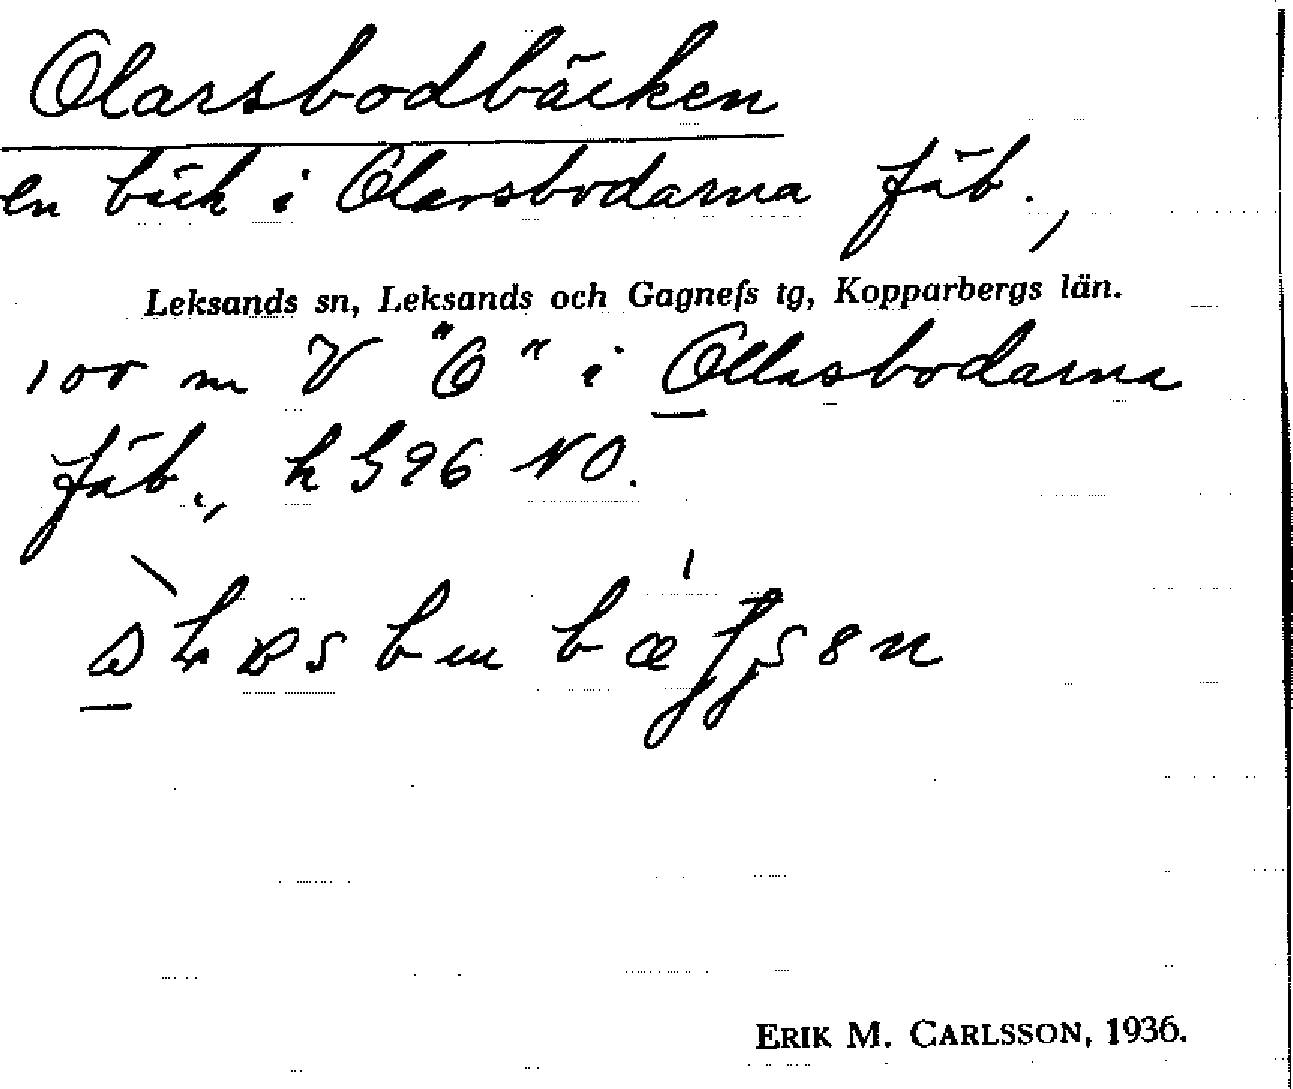 Olarsbodbäcken
en bäck i Olarsbodarna fäb.,
Leksands sn, Leksands och Gagnefs tg, Kopparbergs län.
100 m V "O" i Ollasbodarna
fäb., k G96 NO.
ERIK M. CARLSSON, 1936.